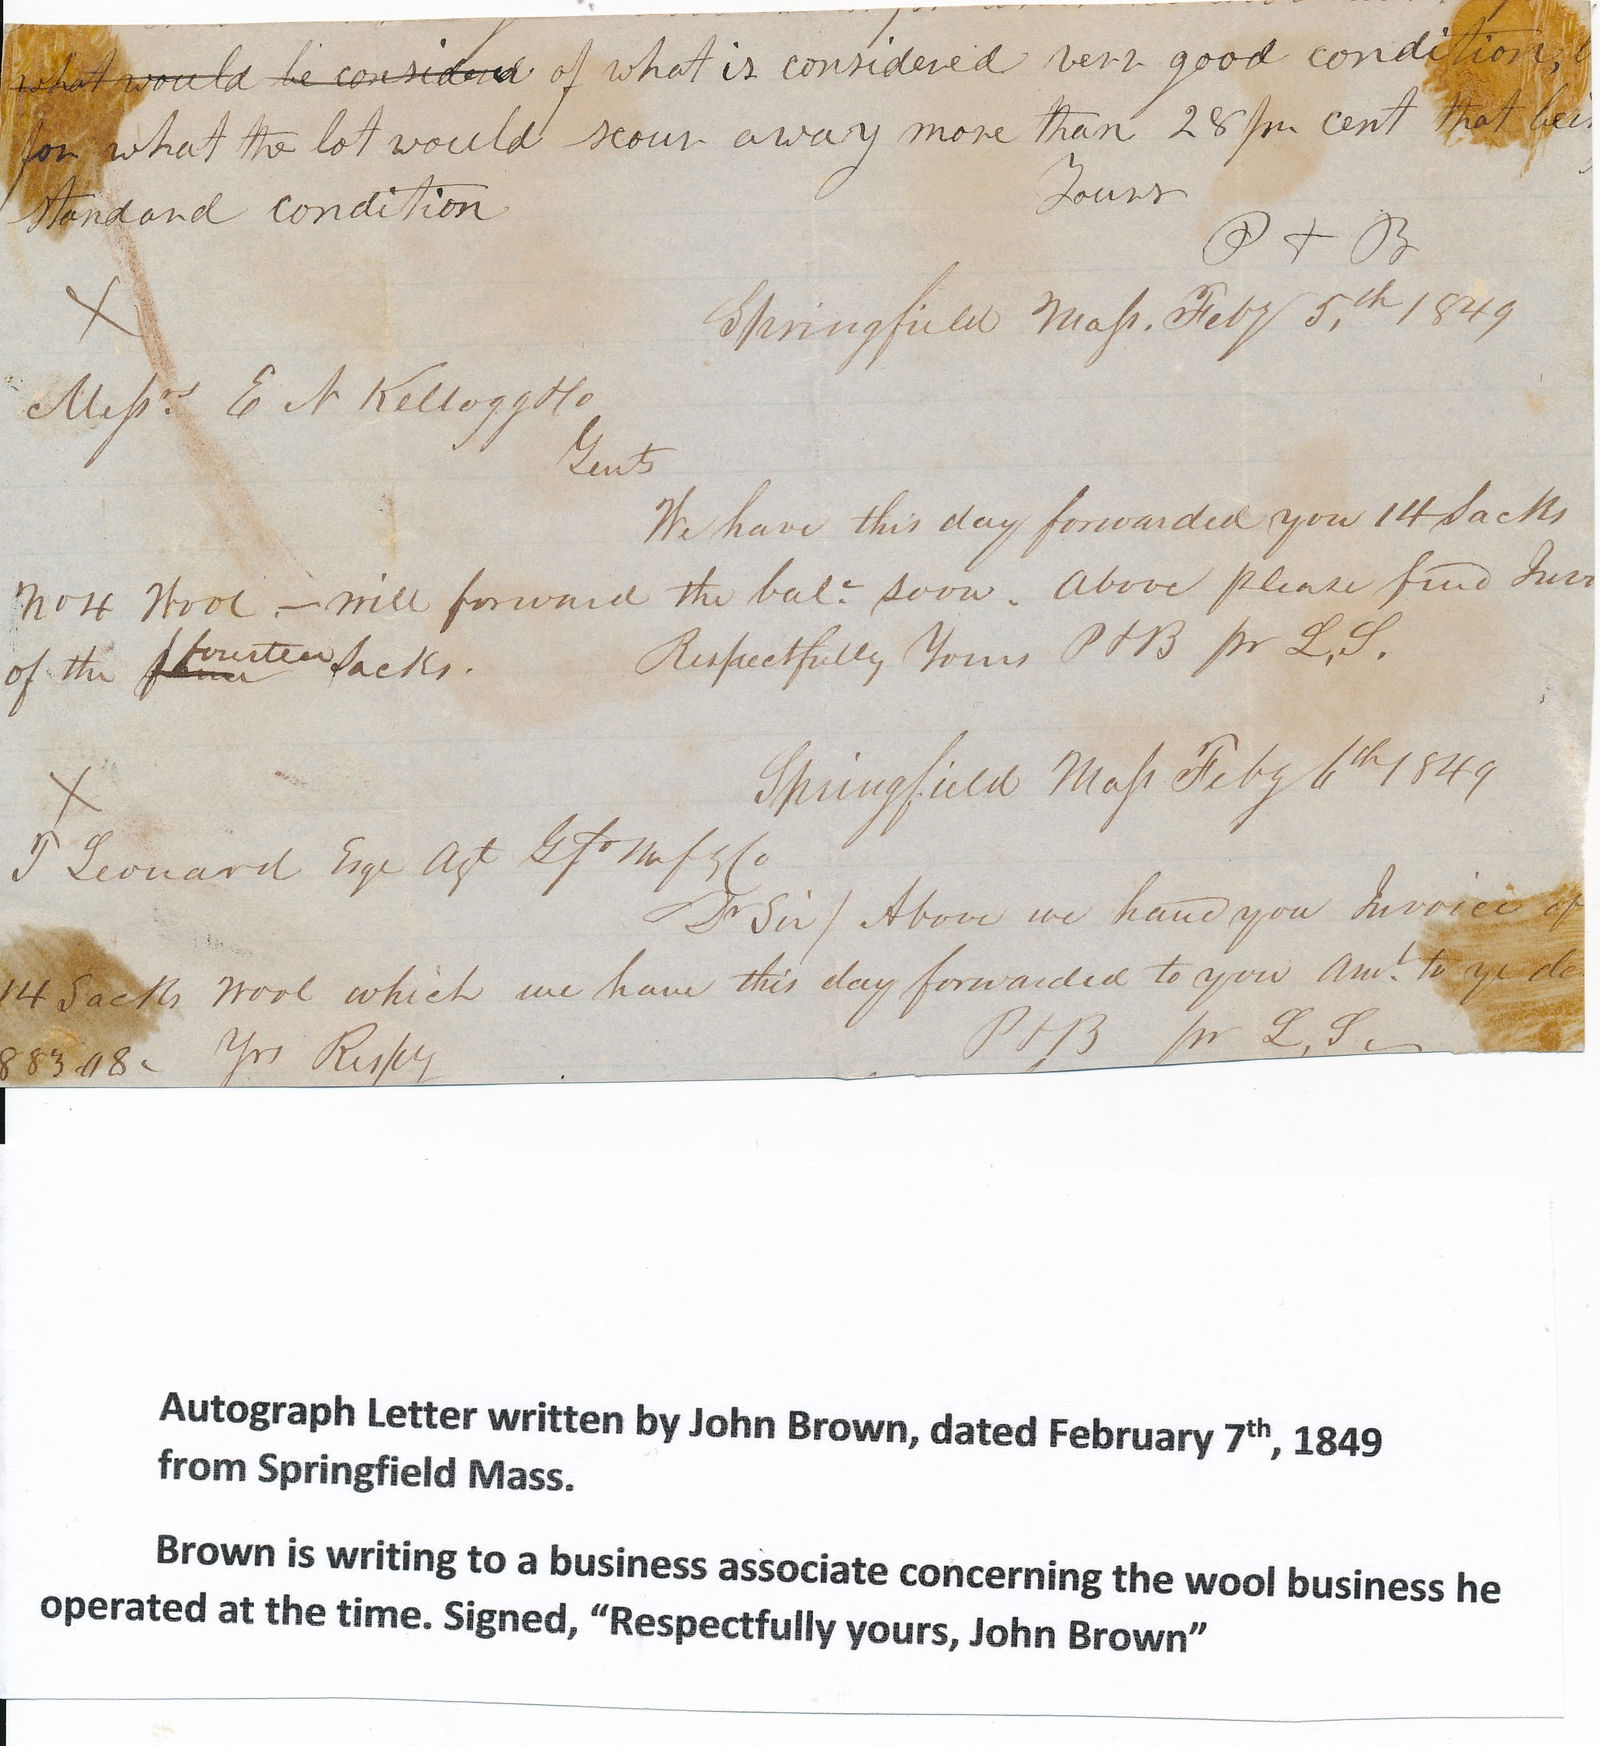 what would be considered of what is considered very good condition,
for what the lot would scour away more than 28 pr cent that bei
standard condition
Yours
P + B
X
Springfield Mass. Feby 5,th 1849
Messrs E N Kellogg & Co
Gents
We have this day forwarded you 14 Sacks
No 4 Wool – will forward the balc soon. Above please find Invo
of the fourteen Sacks. Respectfully Yours P+B pr L,S.
X
Springfield Mass Feby 6th 1849
T Leonard Esqe Agt Mnfg Co
Dr Sir / Above we hand you Invoice of
14 Sacks Wool which we have this day forwarded to you Amt. to
883.18 Yrs Respy P+B pr L,S.
Autograph Letter written by John Brown, dated February 7th, 1849
from Springfield Mass.
Brown is writing to a business associate concerning the wool business he
operated at the time. Signed, “Respectfully yours, John Brown”